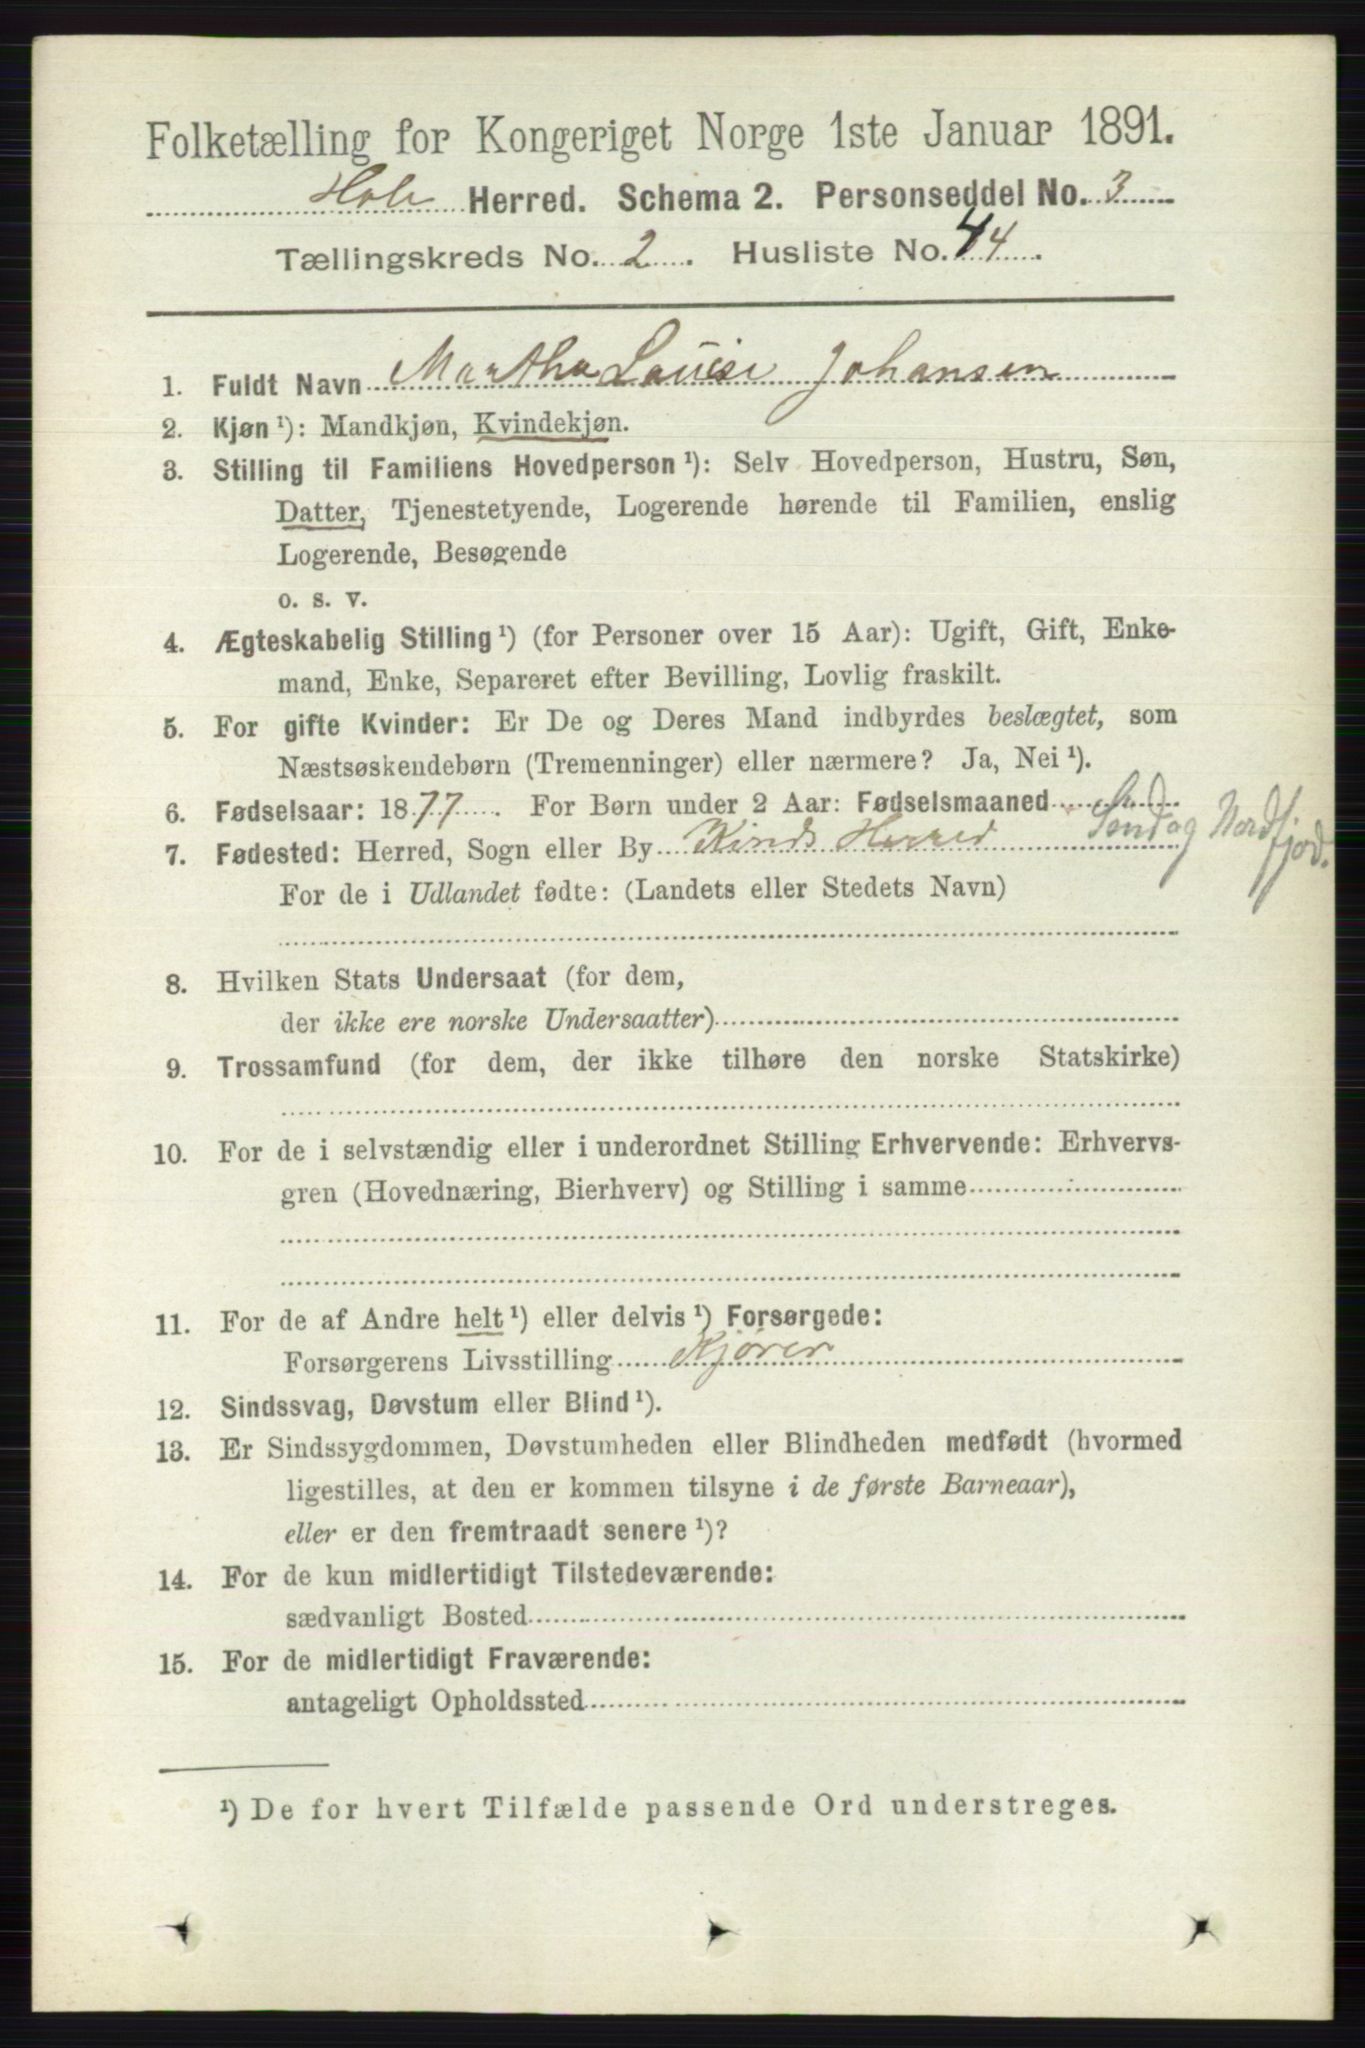 Folketælling for Kongeriget Norge 1ste Januar 1891.
Hole Herred. Schema 2. Personseddel No. 3
Tællingskreds No. 2. Husliste No. 44.
1. Fuldt Navn Martha Louise Johansen
2. Kjøn ¹): Mandkjøn, Kvindekjøn.
3. Stilling til Familiens Hovedperson ¹): Selv Hovedperson, Hustru, Søn,
Datter, Tjenestetyende, Logerende hørende til Familien, enslig
Logerende, Besøgende
o. s. v.
4. Ægteskabelig Stilling ¹) (for Personer over 15 Aar): Ugift, Gift, Enke-
mand, Enke, Separeret efter Bevilling, Lovlig fraskilt.
5. For gifte Kvinder: Er De og Deres Mand indbyrdes beslægtet, som
Næstsøskendebørn (Tremenninger) eller nærmere? Ja, Nei ¹).
6. Fødselsaar: 1877. For Børn under 2 Aar: Fødselsmaaned
7. Fødested: Herred, Sogn eller By Kinds Herred Sønd og Nordfjord.
For de i Udlandet fødte: (Landets eller Stedets Navn)
8. Hvilken Stats Undersaat (for dem,
der ikke ere norske Undersaatter)
9. Trossamfund (for dem, der ikke tilhøre den norske Statskirke)
10. For de i selvstændig eller i underordnet Stilling Erhvervende: Erhvervs-
gren (Hovednæring, Bierhverv) og Stilling i samme
11. For de af Andre helt ¹) eller delvis ¹) Forsørgede:
Forsørgerens Livsstilling Kjører
12. Sindssvag, Døvstum eller Blind ¹).
13. Er Sindssygdommen, Døvstumheden eller Blindheden medfødt (hvormed
ligestilles, at den er kommen tilsyne i de første Barneaar),
eller er den fremtraadt senere ¹)?
14. For de kun midlertidigt Tilstedeværende:
sædvanligt Bosted
15. For de midlertidigt Fraværende:
antageligt Opholdssted
¹) De for hvert Tilfælde passende Ord understreges.